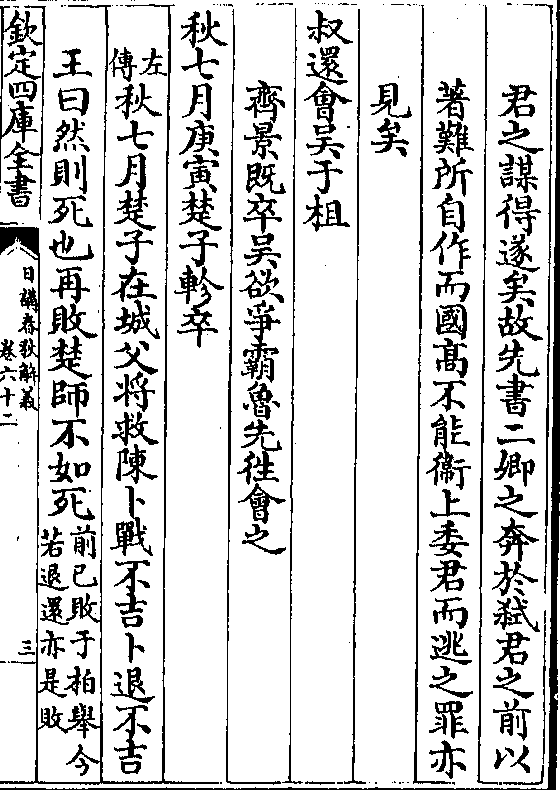 君之謀得遂矣故先書二卿之奔於弑君之前以
著難所自作而國高不能衞上委君而逃之罪亦
見矣
叔還會吳于柤
齊景既卒吳欲爭霸魯先徃會之
秋七月庚寅楚子軫卒
左傳秋七月楚子在城父將救陳卜戰不吉卜退不吉
王曰然則死也再敗楚師不如死前已敗于柏舉今若退還亦是敗
欽定四庫全書
日講春秋解義
卷六十二
三